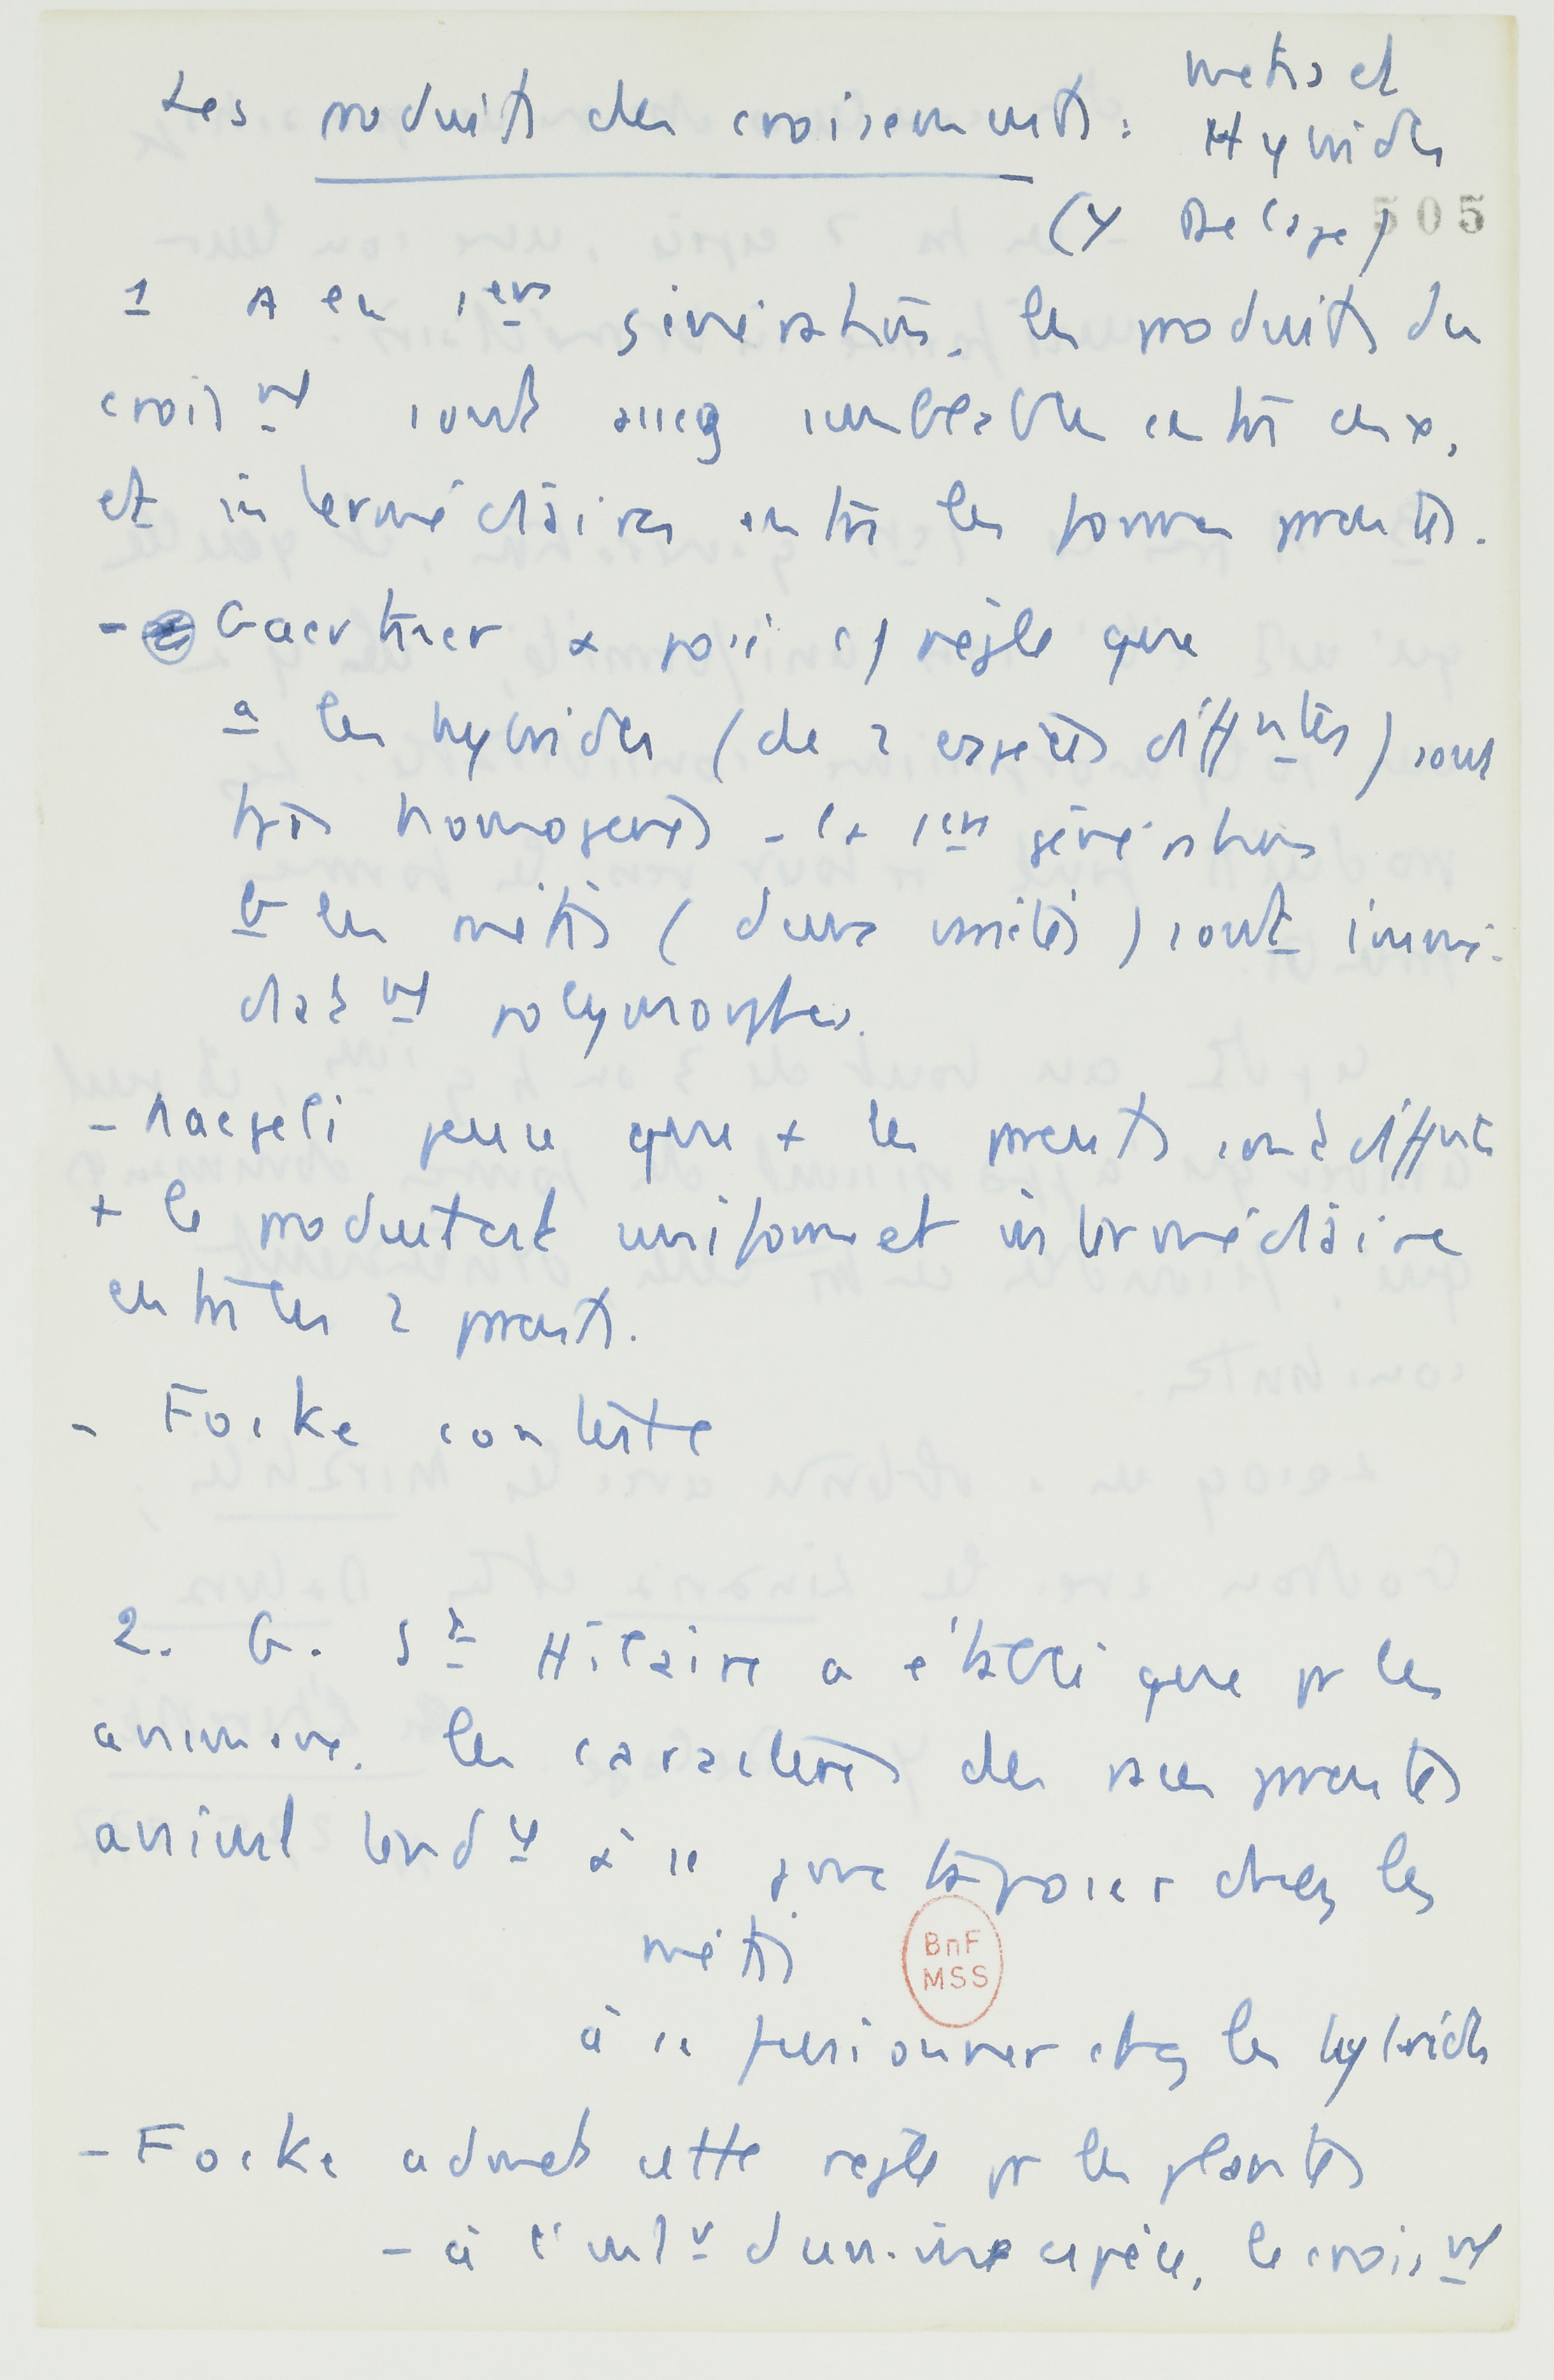 Les produits des croisements : métis et
Hybrides
(Y Delage) 505
1 A en 1ere génération, les produits du
croisnt sont assez semblables entre eux,
et intermédiaires entre les formes parentes.
- Gaertner a posé c/ règle que
a les hybrides (de 2 espèces difftntes) sont
très homogenes - la 1ere génération
b les métis (deux variétés) sont immé-
diatnt polymorphes.
- Naegeli pense que + les parents sont difftnts
+ le produit est uniforme et intermédiaire
entre les 2 parents.
- Focke conteste
2. G. St Hilaire a établi que pr les
animaux, les caractères des races parentes
tendt à se juxtaposer chez les
métis
à se fusionner chez les hybrides
- Focke admet cette règle pr les plantes
- à l'intr d'une espèce, le croisnt
BnF
MSS